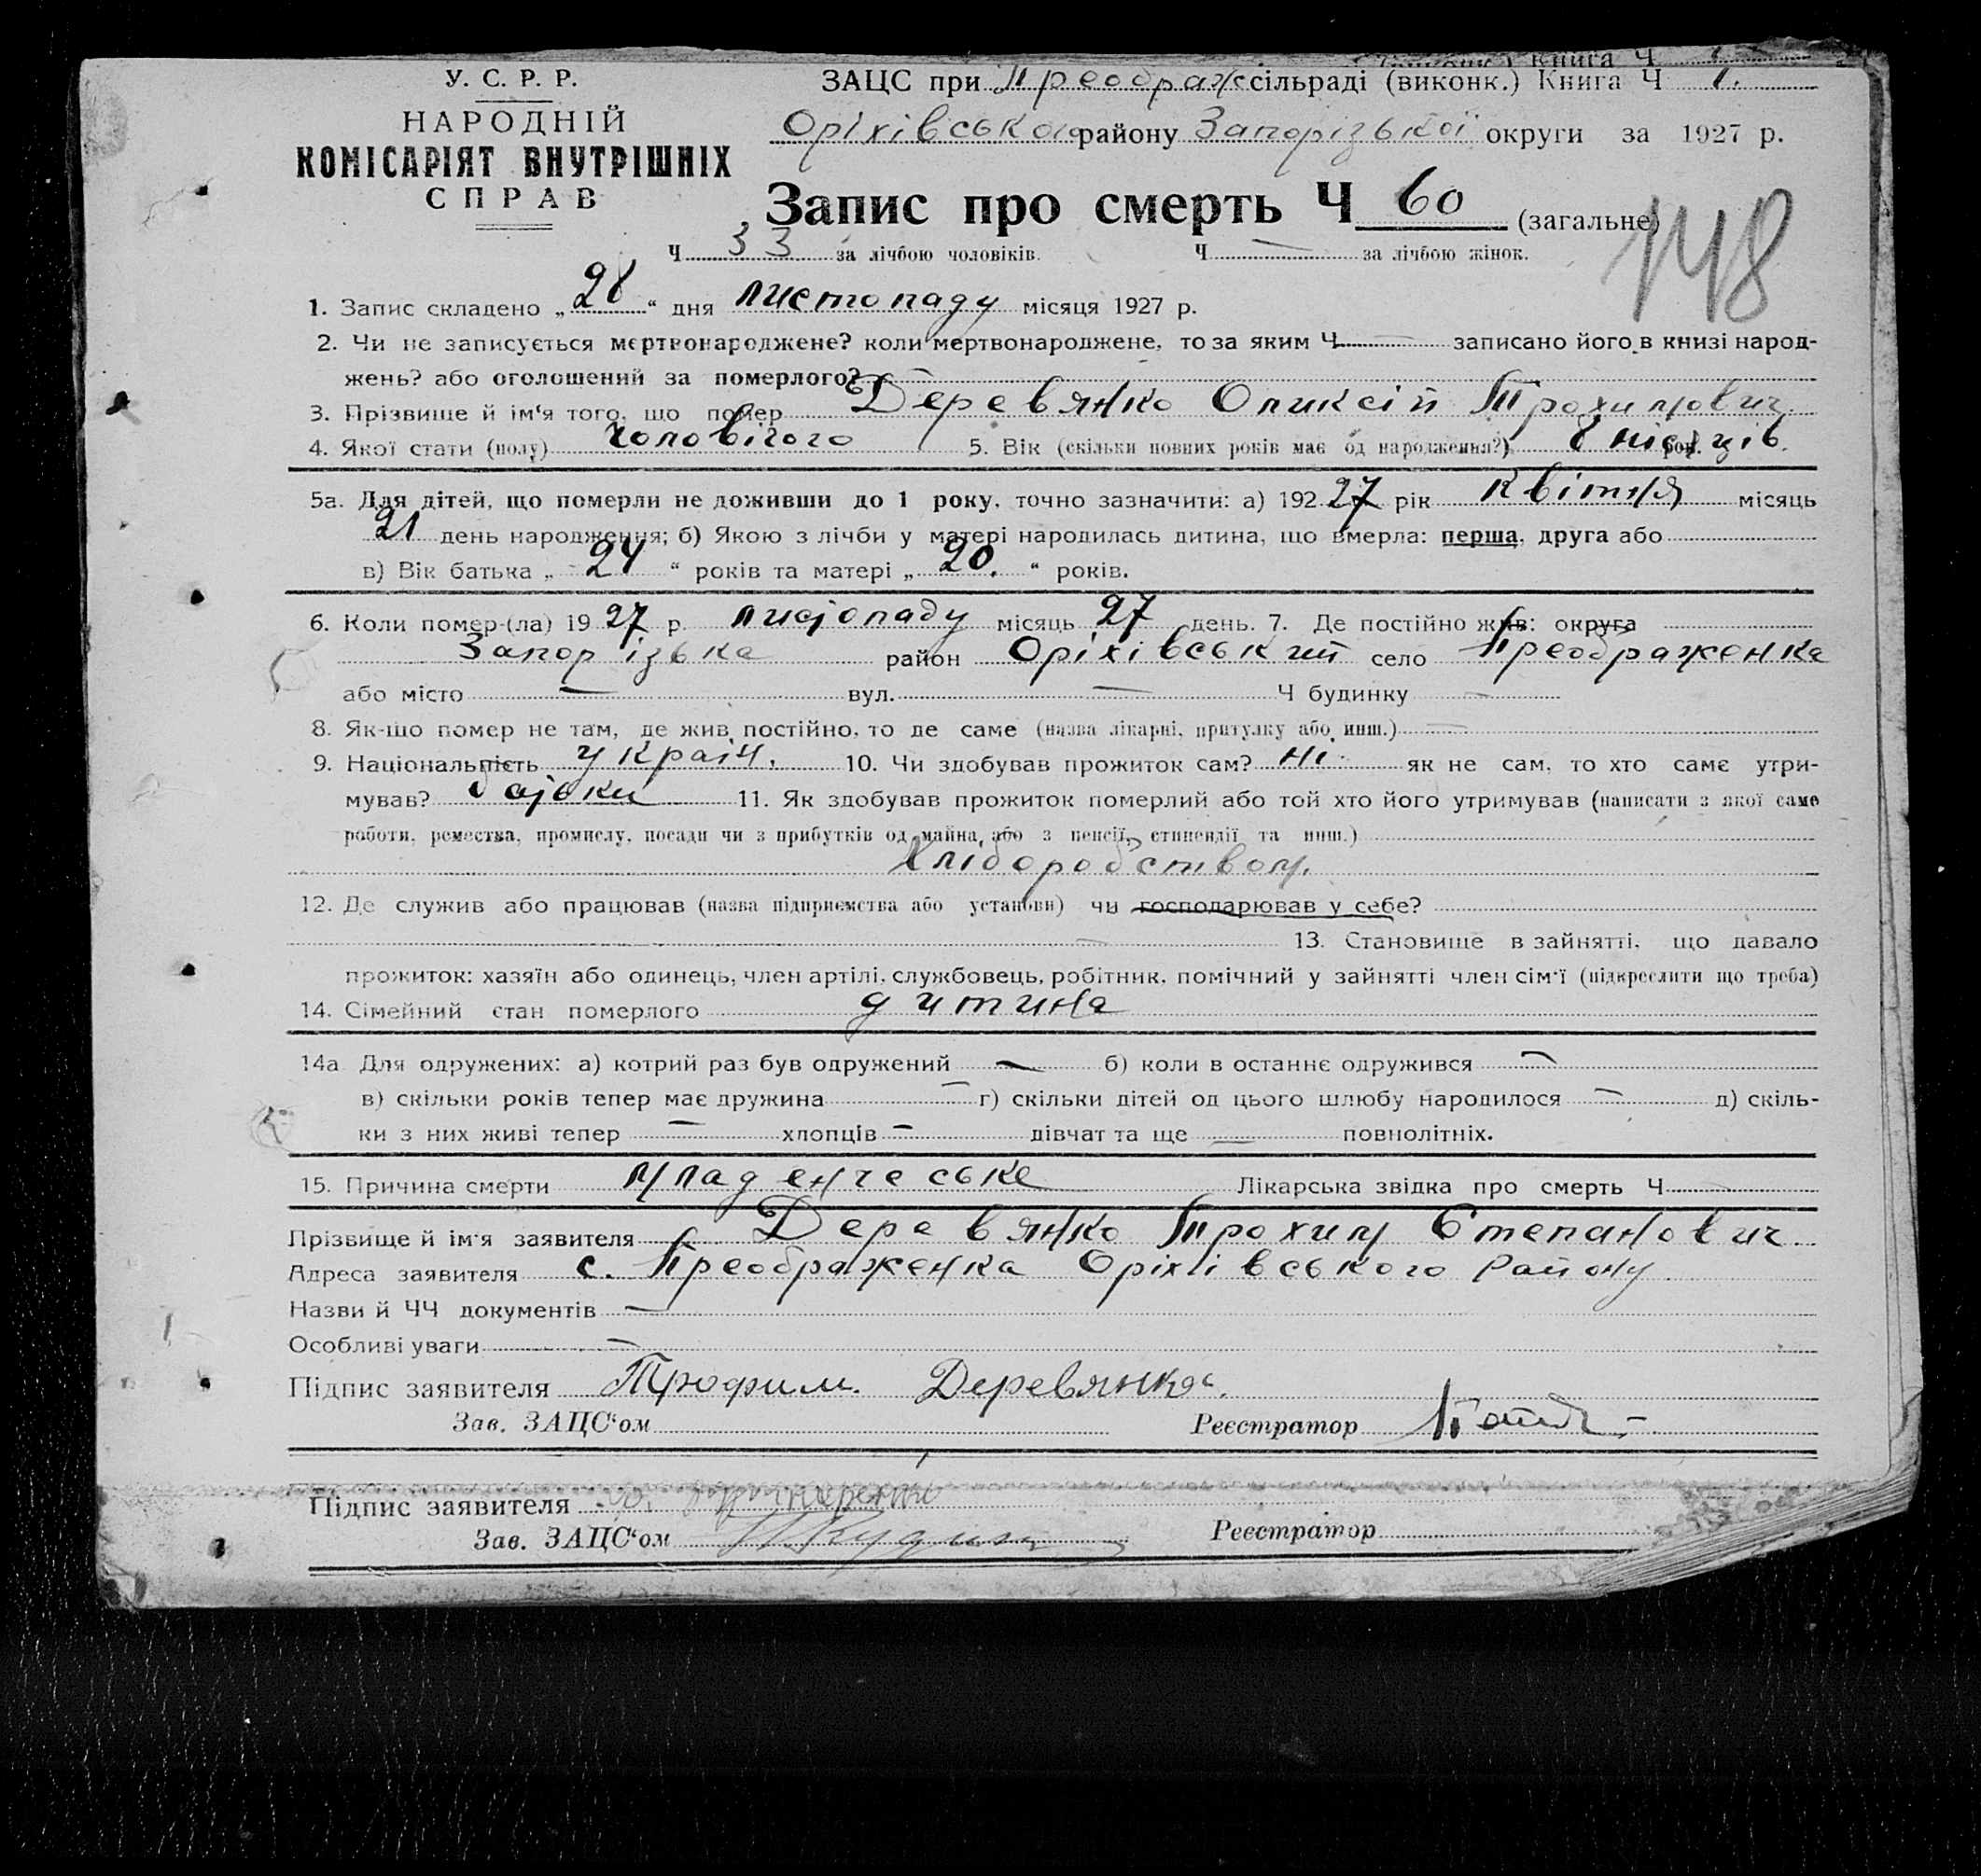 книга Ч
У. С. Р. Р.
НАРОДНІЙ
КОМІСАРІЯТ ВНУТРІШНІХ
СПРАВ
ЗАЦС при Преображ сільраді (виконк.) Книга Ч 1.
Оріхівського району Запорізької округи за 1927 р.
Запис про смерть Ч 60 (загальне)
148
Ч 33 за лічбою чоловіків. Ч — за лічбою жінок.
1. Запис складено „ 28 “ дня листопаду місяця 1927 р.
2. Чи не записується мертвонароджене? коли мертвонароджене, то за яким Ч — записано його в книзі народ-
жень? або оголошений за померлого? —
3. Прізвище й ім‘я того, що помер Деревянко Оликсій Трохимович
4. Якої стати (полу) чоловічого 5. Вік (скільки повних років має од народження?) 8 місяців. рок.
5а. Для дітей, що померли не доживши до 1 року, точно зазначити: а) 192 27 рік квітня місяць
21 день народження; б) Якою з лічби у матері народилась дитина, що вмерла: перша, друга або
в) Вік батька „ 24 “ років та матері „ 20. “ років.
6. Коли помер-(ла) 19 27 р. листопаду місяць 27 день. 7. Де постійно жив: округа
Запорізька район Оріхівський село Преображенка
або місто — вул. — Ч будинку —
8. Як-що помер не там, де жив постійно, то де саме (назва лікарні, притулку або инш.) —
9. Національність україн. 10. Чи здобував прожиток сам? ні. як не сам, то хто саме утри-
мував? батьки 11. Як здобував прожиток померлий або той хто його утримував (написати з якої саме
роботи, ремества, промислу, посади чи з прибутків од майна, або з пенсії, стипендії та инш.)
Хліборобством.
12. Де служив або працював (назва підприємства або установи) чи господарював у себе?
— 13. Становище в зайнятті, що давало
прожиток: хазяїн або одинець, член артілі, службовець, робітник, помічний у зайнятті член сім‘ї (підкреслити що треба)
14. Сімейний стан померлого дитина
14а Для одружених: а) котрий раз був одружений — б) коли в останнє одружився —
в) скільки років тепер має дружина — г) скільки дітей од цього шлюбу народилося — д) скіль-
ки з них живі тепер — хлопців — дівчат та ще — повнолітніх.
15. Причина смерти младенческе Лікарська звідка про смерть Ч —
Прізвище й ім‘я заявителя Деревянко Трохим Степанович
Адреса заявителя с. Преображенка Оріхівського Району
Назви й ЧЧ документів —
Особливі уваги —
Підпис заявителя Трофим. Деревянко.
Зав. ЗАЦС‘ом Реєстратор
Підпис заявителя
Зав. ЗАЦС‘ом Реєстратор